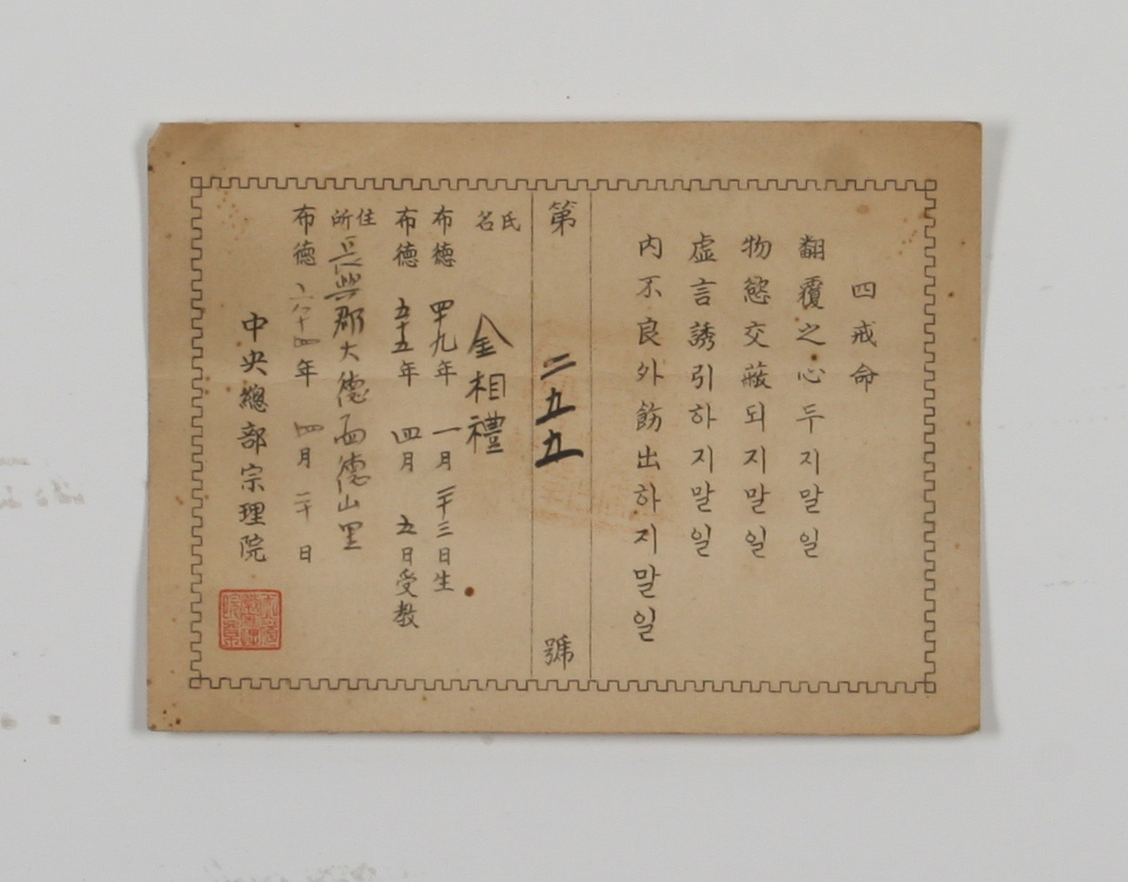 四戒命
翻覆之心두지말일
物慾交蔽되지말일
虛言誘引하지말일
內不良外飾出하지말일
第二五九號
氏名 金相禮
布德四十九年一月二十三日生
布德五十五年四月五日受敎
住所 長興郡大德面德山里
布德六十四年四月二十日
中央總部宗理院